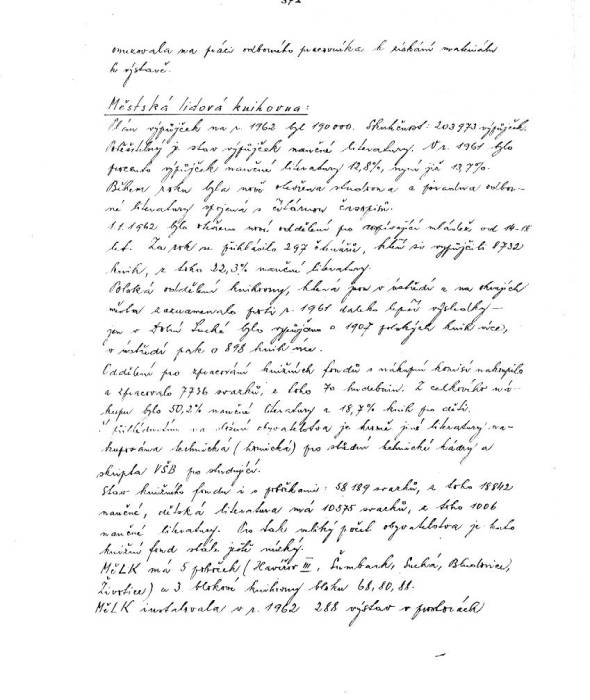 371
omezovala na práci odborného pracovníka k získání materiálu
k výstavě.
Městská lidová knihovna:
Plán výpůjček na r. 1962 byl 190000. Skutečnost: 203973 výpůjček.
Potěšitelný je stav výpůjček naučné literatury. V r. 1961 bylo
procento výpůjček naučné literatury 12,8%, nyní již 13,7%.
Během roku byla nově otevřena studovna a půjčovna odbor-
né literatury spojená s čítárnou časopisů.
1.1.1962 bylo otevřeno nové oddělení pro dospívající mládež od 14-18
let. Za rok se přihlásilo 297 čtenářů, kteří si vypůjčili 8732
knih, z toho 22,3% naučné literatury.
Polská oddělení knihovny, která jsou v ústředí a na okrajích
města zaznamenala proti r. 1961 daleko lepší výsledky -
jen v Dolní Suché bylo vypůjčeno o 1907 polských knih více,
v ústředí pak o 898 knih více.
Oddělení pro zpracování knižních fondů s nákupní komisí nakoupilo
a zpracovalo 7736 svazků, z toho 70 hudebnin. Z celkového ná-
kupu bylo 50,2% naučné literatury a 18,7% knih pro děti.
S přihlédnutím na složení obyvatelstva je kromě jiné literatury na-
kupována technická (hornická) pro střední technické kádry a
skripta VŠB pro studující.
Stav knižního fondu i s pobočkami: 58189 svazků, z toho 18842
naučné, dětská literatura má 10575 svazků, z toho 1006
naučné literatury. Pro tak veliký počet obyvatelstva je tento
knižní fond stále ještě nízký.
MěLK má 5 poboček (Havířov III, Šumbark, Suchá, Bludovice,
Životice) a 3 blokové knihovny bloku 68, 80, 88.
MěLK instalovala v r. 1962 288 výstav v prostorách